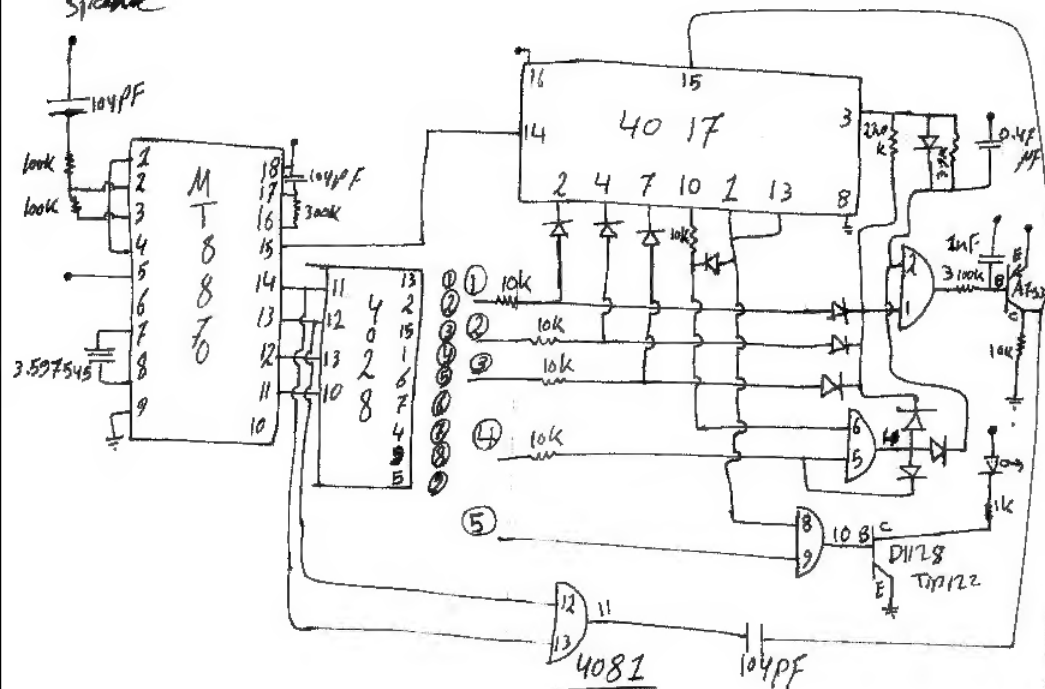 104PF
100k
100k
1
2
3
4
5
6
7
8
9
MT8870
3.597545
18
17
16
15
14
13
12
11
10
104PF
300k
11
12
13
10
4028
13
2
15
1
6
7
4
5
1
2
3
4
5
16
15
14
4017
3
2
4
7
10
1
13
8
10k
10k
10k
10k
10k
220k
0.47 µF
2
1
1nF
100k
B
E
C
10k
6
5
4
8
9
10
B
C
E
D1128
TIP122
1k
12
13
11
4081
104PF